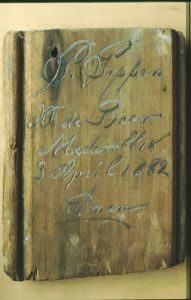 P. Sippen
K de Boer
Medemblik
3 April 1882
Amen